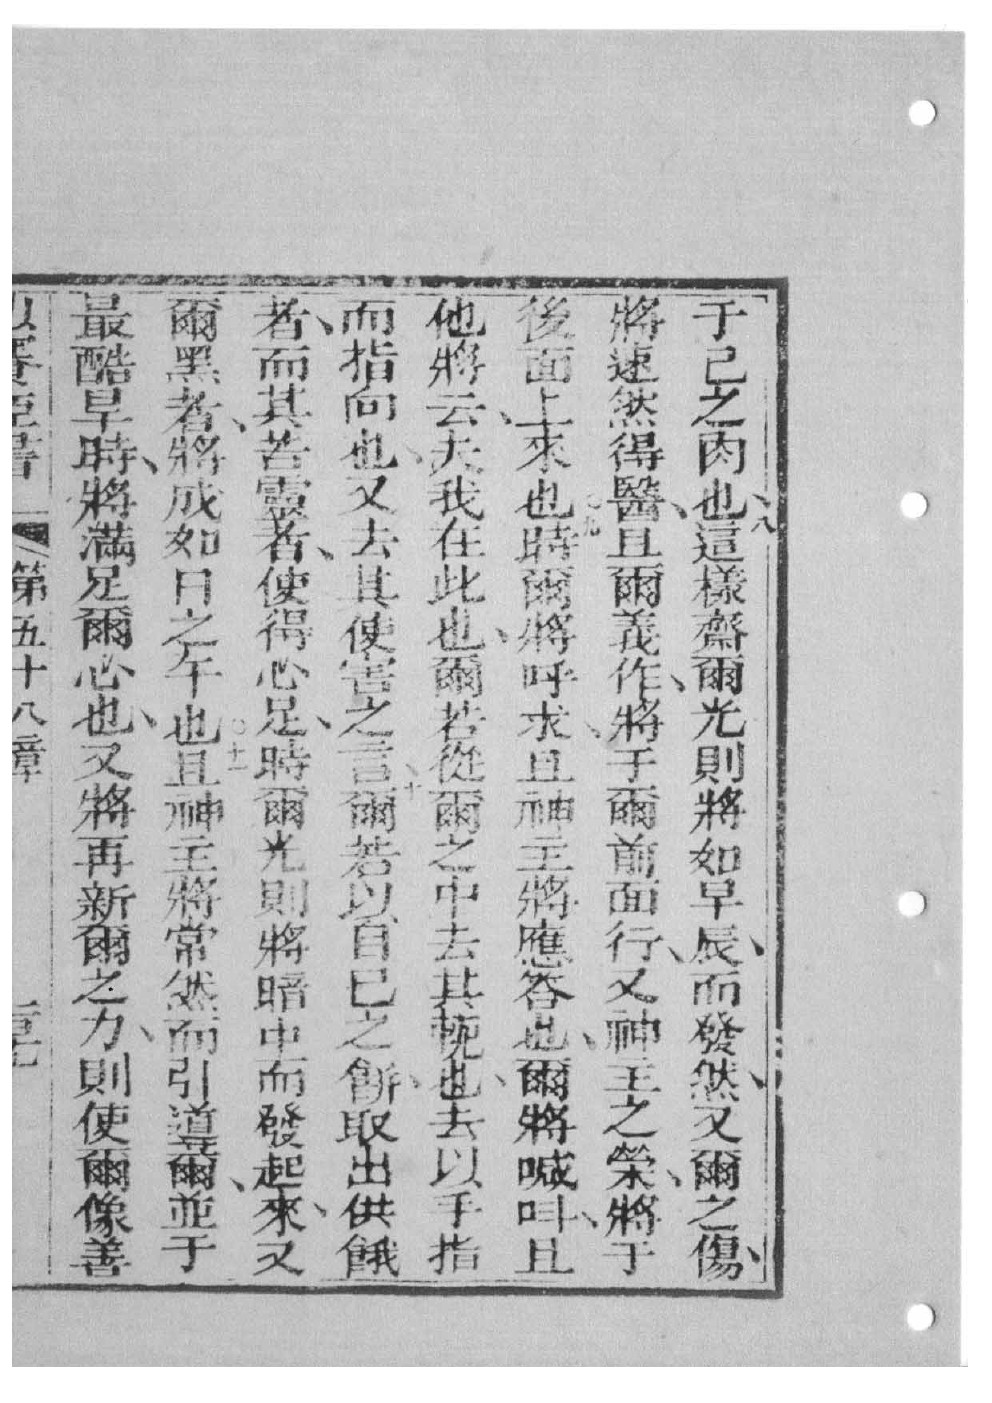 于己之肉也、八這樣齋爾光則將如早辰、而發然、又爾之傷、
將速然得醫、且爾義作、將于爾前面行、又神主之榮、將于
後面上來也九時爾將呼求、且神主將應答也、爾將喊叫、且
他將云、夫我在此也、爾若從爾之中去其軛也、去以手指
而指向也、又去其使害之言、十爾若以自己之餅、取出供餓
者、而其苦靈者、使得心足、時爾光則將暗中而發起來、又
爾黑者、將成如日之午也〇十一且神主將常然而引導爾、並于
最酷旱時、將滿足爾心也、又將再新爾之力、則使爾像善
以賽亞書 第五十八章